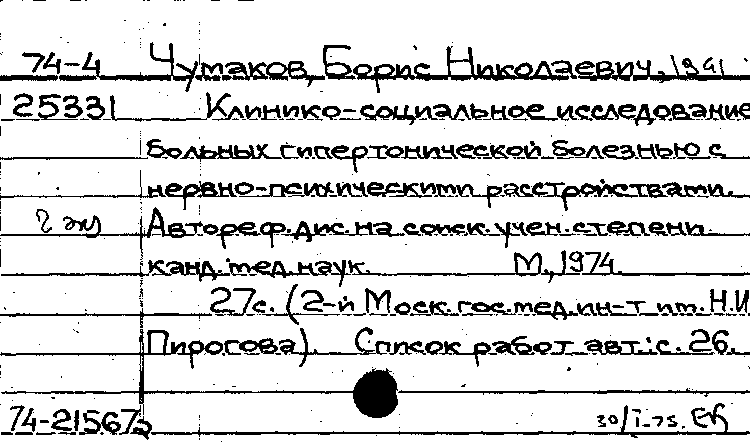 74-4 Чумаков, Борис Николаевич, 1941
25331 Клинико-социальное исследование
больных гипертонической болезнью с
нервно-психическими расстройствами.
2 экз Автореф. дис. на соиск. учен. степени
канд. мед. наук. М., 1974.
27с. (2-й Моск. гос. мед. ин-т им. Н.И
Пирогова). Список работ авт.: с. 26.
74-21567 30/I-75. ЕК